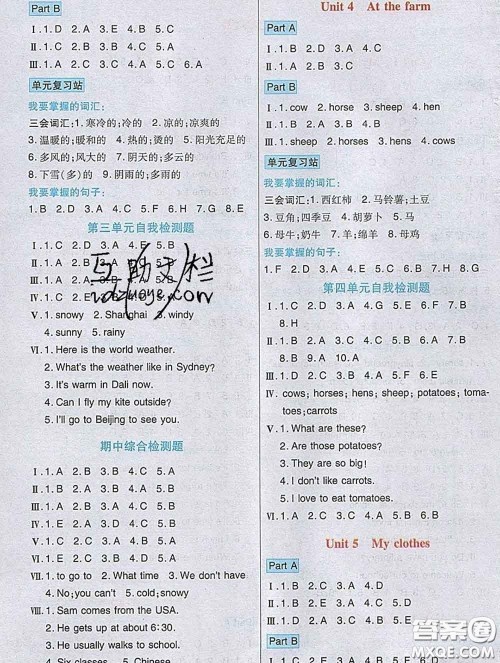 Part B
Ⅰ.1.D 2.A 3.C 4.B
Ⅱ.1.B 2.A 3.A 4.B
Ⅲ.1.C 2.D 3.B 4.C 5.C 6.A
单元复习站
我要掌握的词汇:
三会词汇:1.寒冷的;冷的 2.凉的;凉爽的
3.温暖的;暖和的 4.热的;烫的 5.阳光充足的
6.多风的;风大的 7.阴天的;多云的
8.下雪(多)的 9.阴雨的;多雨的
我要掌握的句子:
1.B 2.D 3.A 4.C 5.F 6.G 7.H 8.E
第三单元自我检测题
Ⅰ.1.C 2.D 3.A 4. 5.B
Ⅱ.1.A 2.B 3. 5.A
Ⅲ.1.A 2.A
Ⅳ.1.C 2.B
Ⅴ.1.snowy 2.Shanghai 3.windy
4.sunny 5.rainy
Ⅵ.1.Here is the world weather.
2.What's the weather like in Sydney?
3.It's warm in Dali now.
4.Can I fly my kite outside?
5.I'll go to Beijing to see you.
期中综合检测题
Ⅰ.1.A 2.B 3.B 4.C 5.A
Ⅱ.1.B 2.A 3.B 4.B 5.A
Ⅲ.1.B 2.A 3.A 4.B 5.B
Ⅳ.1.A 2.B 3.A 4.B 5.B
Ⅴ.1.C 2.A 3.A 4.C 5.B
Ⅵ.1.B 2.D 3.A 4.E 5.C
Ⅶ.1.to go to 2.What time 3.We don't have
4.No;you can't 5.cold;snowy
Ⅷ.1.Sam comes from the USA.
2.He gets up at about 6:30.
3.He usually walks to school.
4.Six classes. 5.Chinese.
Unit 4 At the farm
Part A
Ⅰ.1.B 2.D 3.A 4.C
Part B
Ⅰ.1.cow 2.horse 3.sheep 4.hen
Ⅱ.1.B 2.A 3.A 4.B
Ⅲ.1.sheep 2.horses 3.hens 4.cows
单元复习站
我要掌握的词汇:
三会词汇:1.西红柿 2.马铃薯;土豆
3.豆角;四季豆 4.胡萝卜 5.马
6.母牛;奶牛 7.羊;绵羊 8.母鸡
我要掌握的句子:
1.F 2.D 3.A 4.C 5.B 6.G 7.E
第四单元自我检测题
Ⅰ.1.D 2.F 3.C 4.A 5.G 6.E 7.B
8.H
Ⅱ.1.A 2.B 3.B 4.C 5.B 6.C 7.A
8.B 9.A 10.A
Ⅲ.1.G 2.D 3.A 4.C 5.E 6.F 7.B
Ⅳ.cows; horses; hens; sheep; potatoes; toma-
toes;carrots
Ⅴ.1.What are these?
2.Are those potatoes?
3.They are so big!
4.I don't like carrots.
5.I love to eat tomatoes.
Ⅵ.1.A 2.B 3.A 4.A 5.B
Unit 5 My clothes
Part A
Ⅰ.1.B 2.C 3.A 4.D
Ⅱ.1.C 2.D 3.A
Ⅲ.1.B 2.C 3.A 4.D
Part B
答案圈
MXQE.COM